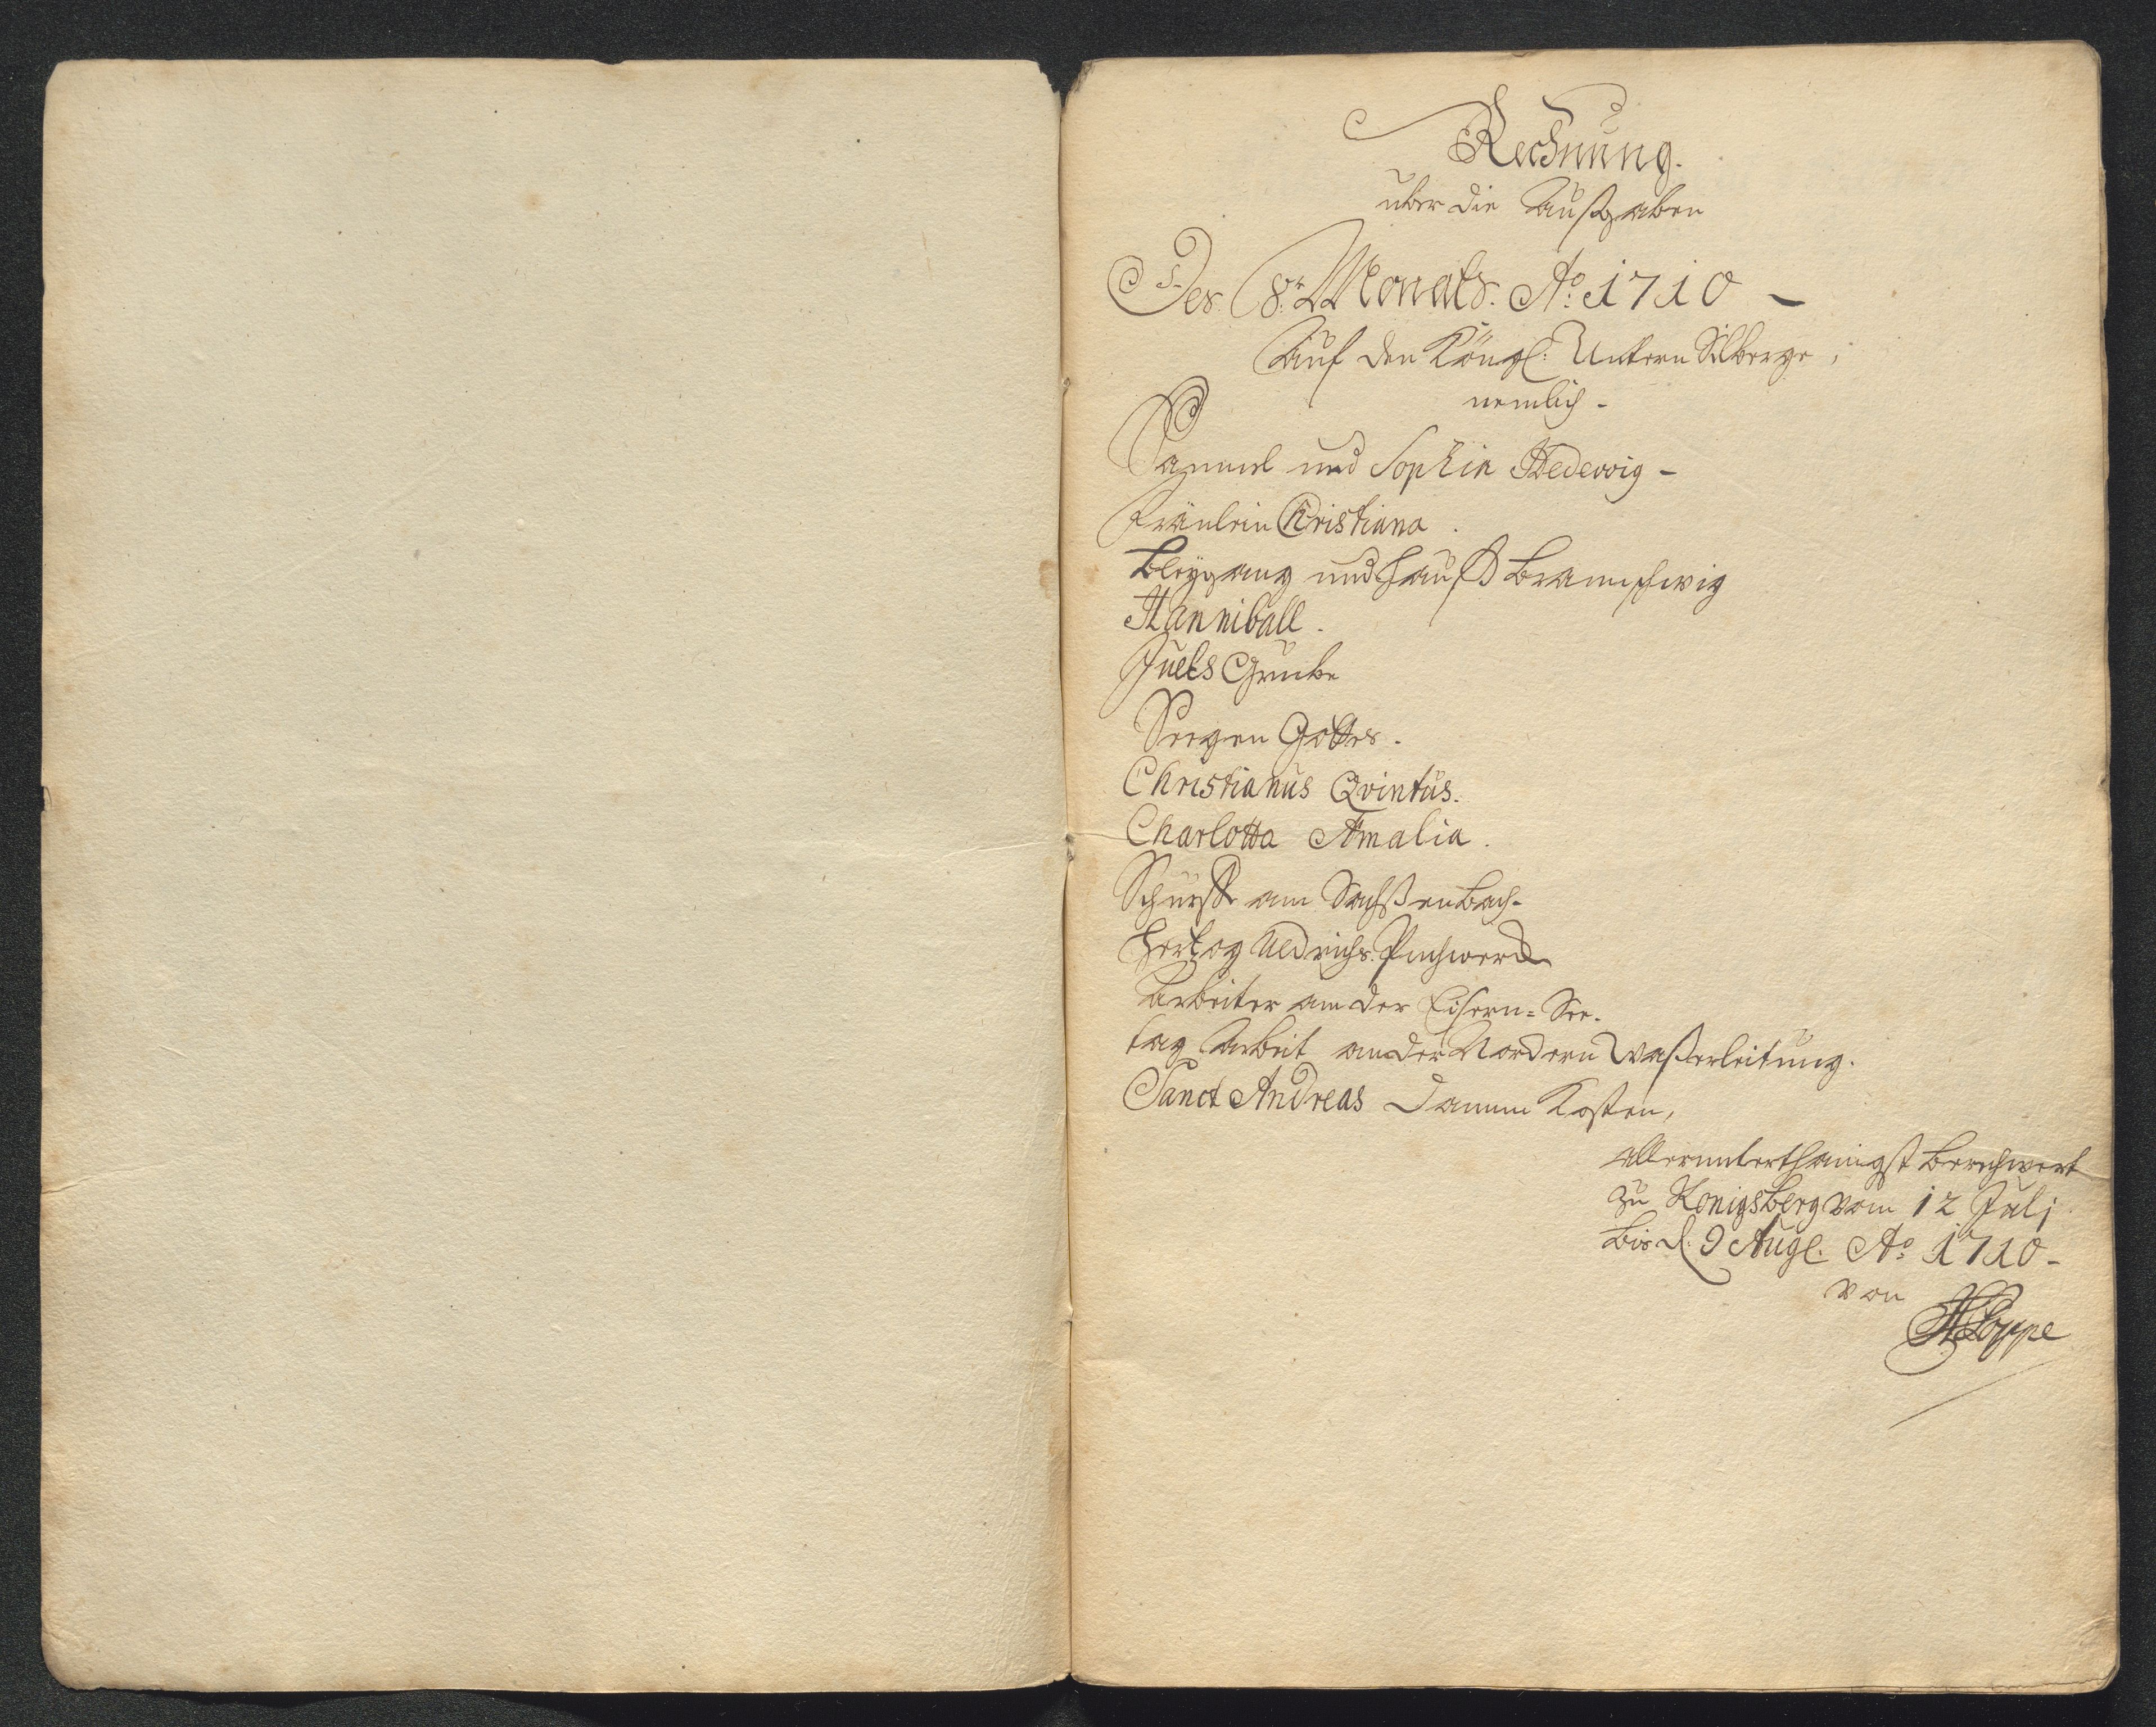 Rechnung.
über die Außgaben
Des 8.t Monats. Ao: 1710 –
Auf den Köngl: Untern Silberge,
nemlich –
Samuel und Sophia Hedewig –
Fräulein Christiana.
Bleygang und Hauß Braunschwig
Hanniball.
Juels Grube
Seegen Gottes.
Christianus Qvintus.
Charlotta Amalia.
Schürff am Sachßenbach.
Hertzog Uldrichs. Puchwerck
Arbeiter am der Eisern= See.
tag Arbeit an der Nordern Waßerleitung.
Sanct Andreas Damm Kosten,
allerunterthänigst
zu Konigsberg vom 12 Julj
bis d. 9 Aug. Ao 1710 –
von